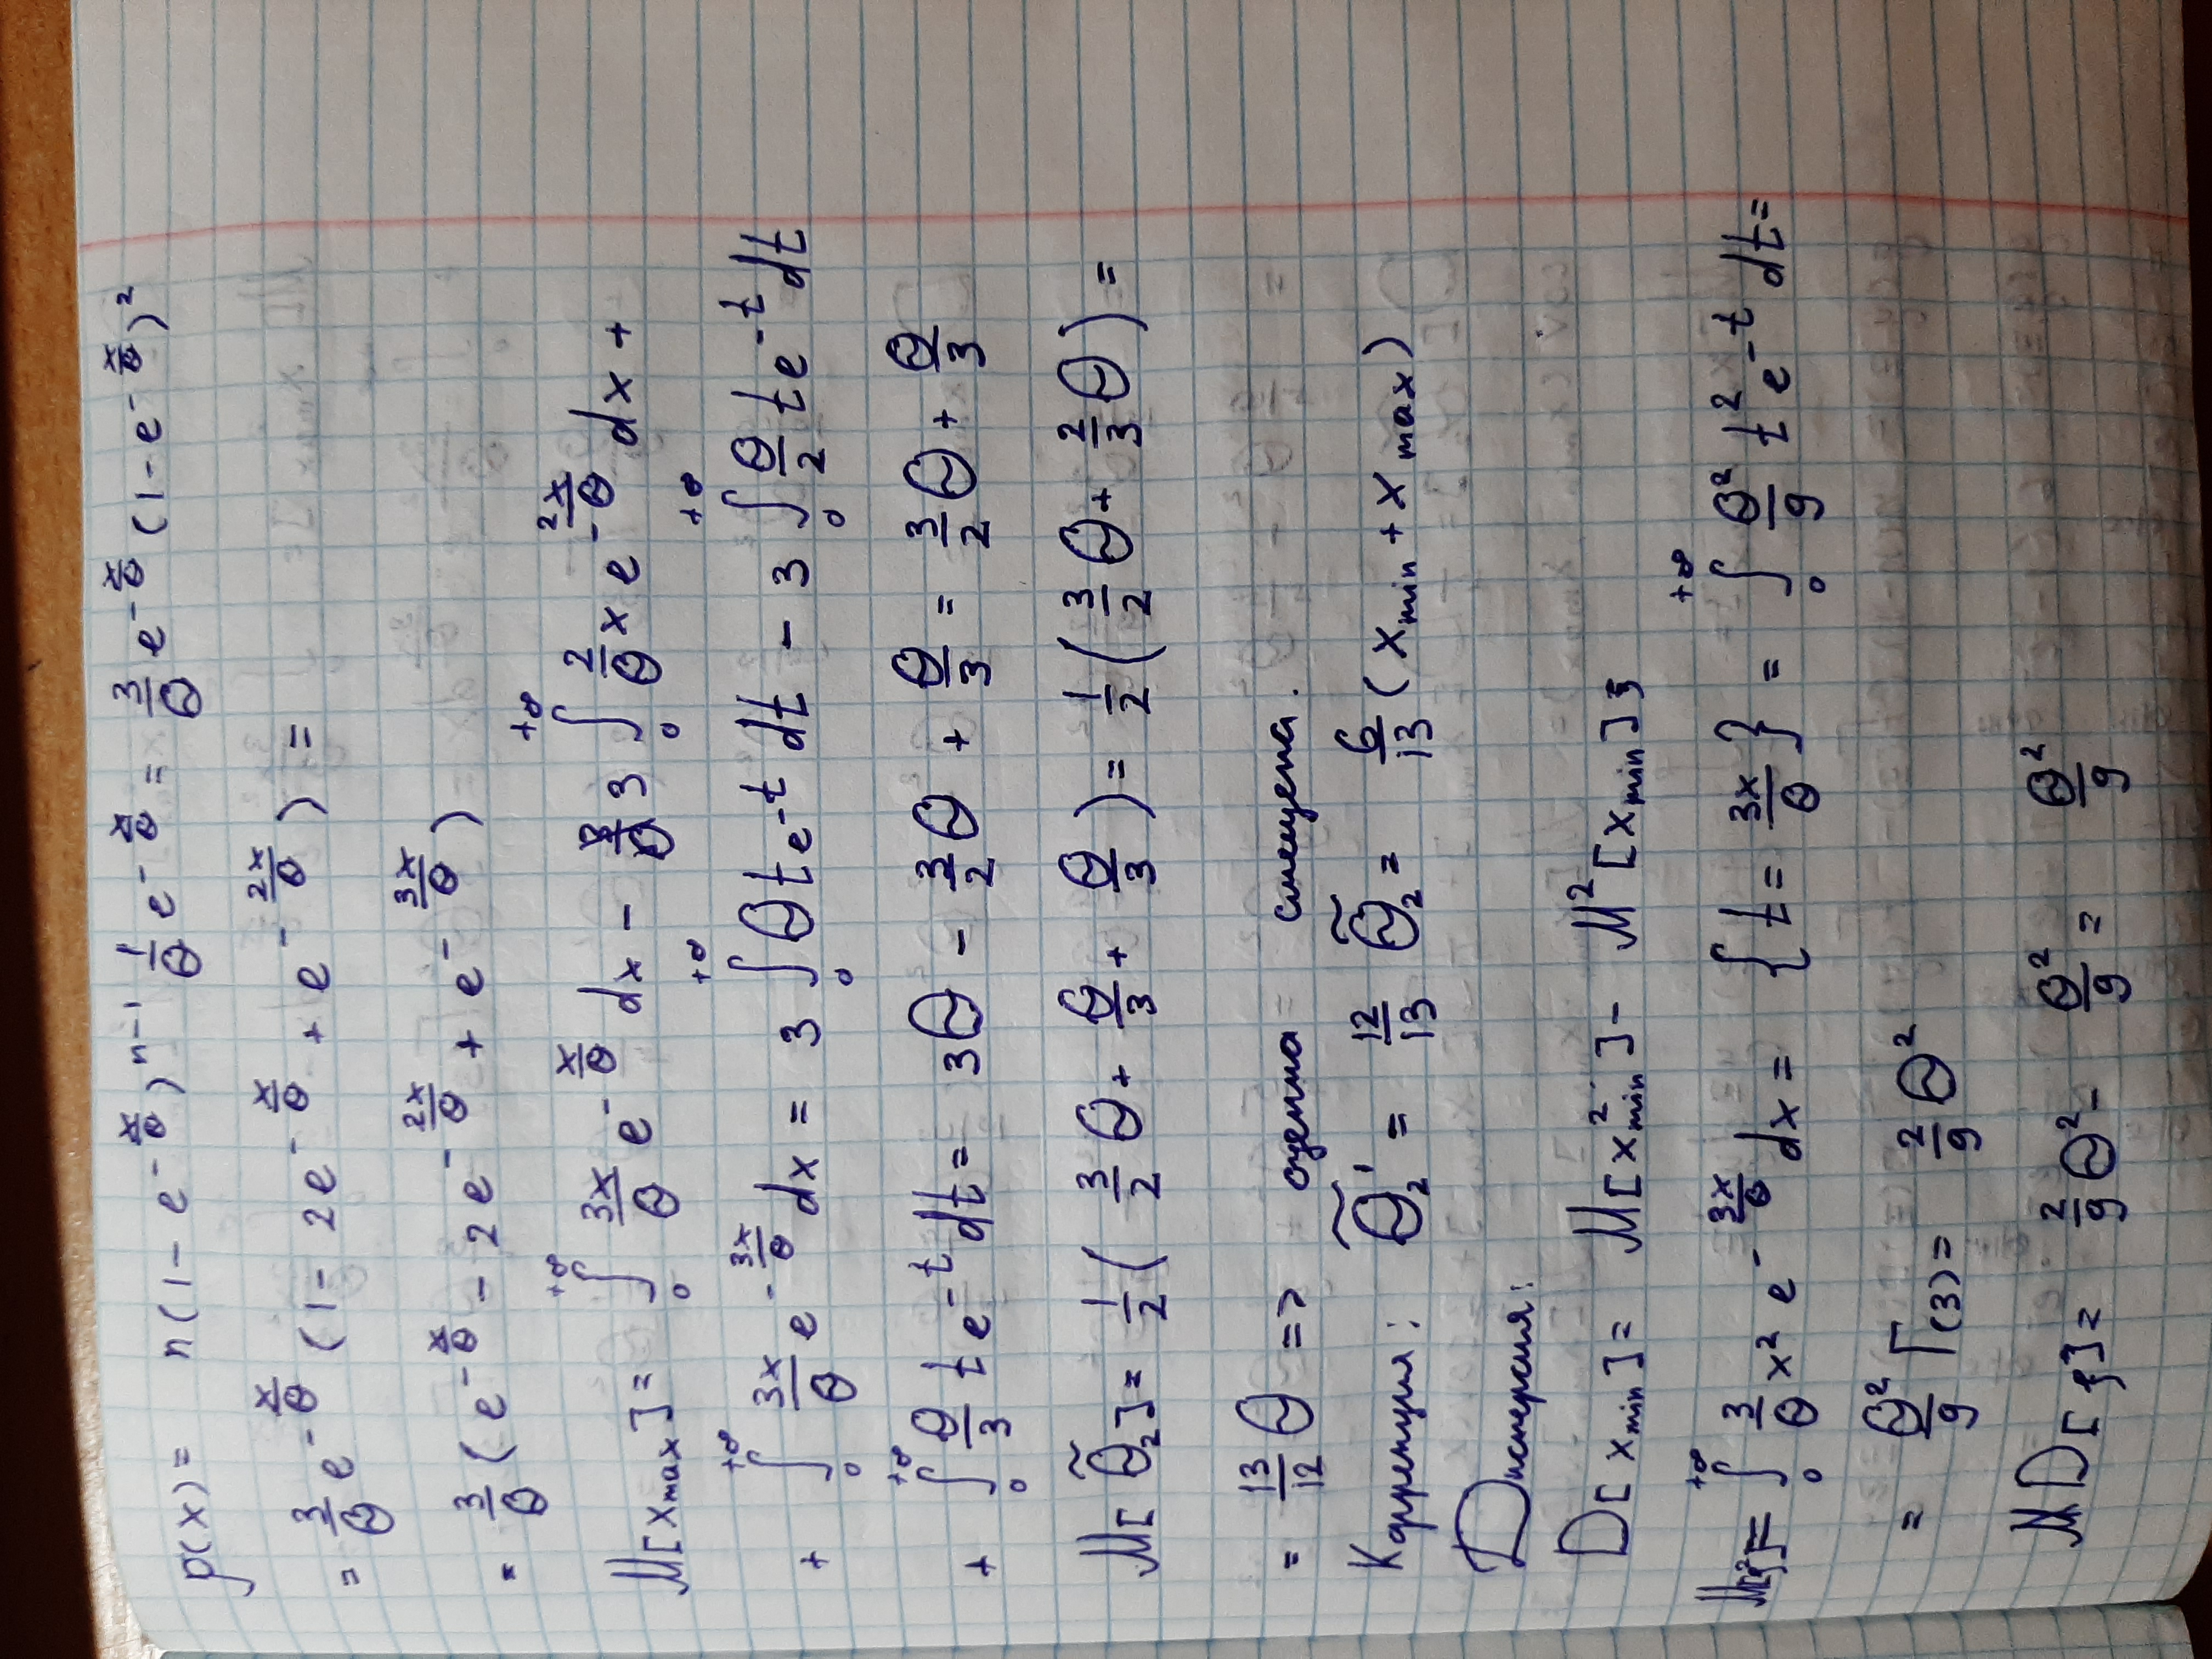 p(x) = n(1 - e^{-x/θ})^{n-1} 1/θ e^{-x/θ} = 3/θ e^{-x/θ} (1 - e^{-x/θ})^2
= 3/θ e^{-x/θ} (1 - 2e^{-x/θ} + e^{-2x/θ}) =
= 3/θ (e^{-x/θ} - 2e^{-2x/θ} + e^{-3x/θ})
M[x_{max}] = ∫_0^{+∞} 3x/θ e^{-x/θ} dx - 3 ∫_0^{+∞} 2/θ x e^{-2x/θ} dx +
+ ∫_0^{+∞} 3x/θ e^{-3x/θ} dx = 3 ∫_0^{+∞} θ t e^{-t} dt - 3 ∫_0^{+∞} θ/2 t e^{-t} dt
+ ∫_0^{+∞} θ/3 t e^{-t} dt = 3θ - 3/2 θ + θ/3 = 3/2 θ + θ/3
M[θ̃_2] = 1/2 (3/2 θ + θ/3 + θ/3) = 1/2 (3/2 θ + 2/3 θ) =
= 13/12 θ => оценка смещена.
Коррекция: θ̃_2' = 12/13 θ̃_2 = 6/13 (x_{min} + x_{max})
Дисперсия:
D[x_{min}] = M[x_{min}^2] - M^2[x_{min}] =
M[ξ^2] = ∫_0^{+∞} 3/θ x^2 e^{-3x/θ} dx = {t = 3x/θ} = ∫_0^{+∞} θ^2/9 t^2 e^{-t} dt =
= θ^2/9 Γ(3) = 2/9 θ^2
D[ξ] = 2/9 θ^2 - θ^2/9 = θ^2/9